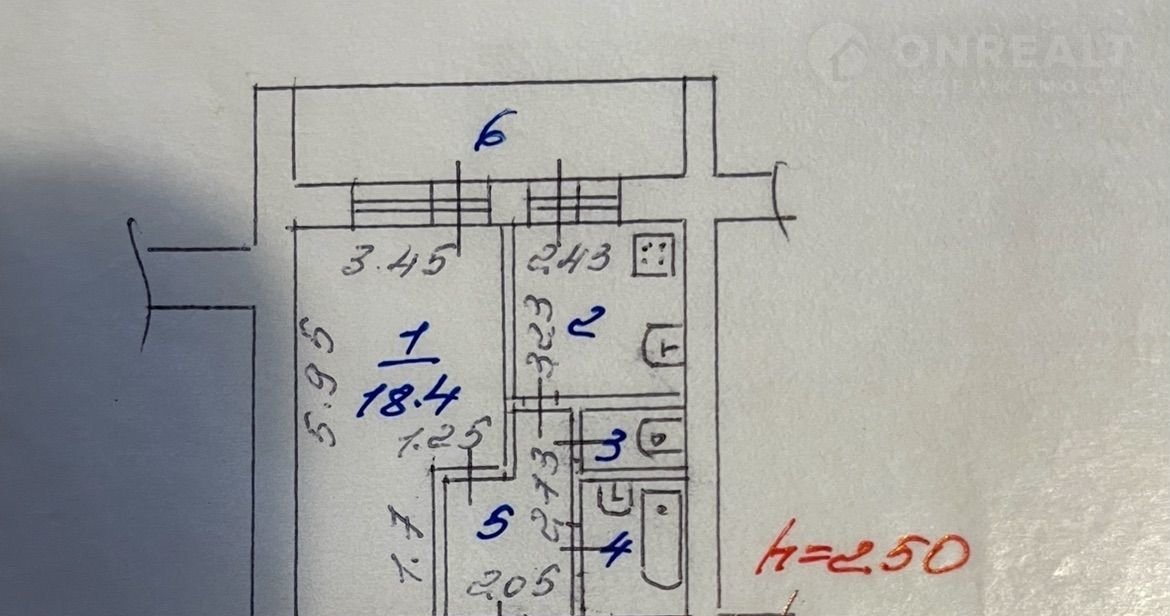 ONREALT
НЕДВИЖИМОСТЬ
6
3.45
2.43
5.95
1
18.4
3.23
2
1.25
3
2.73
5
1.7
4
2.05
h=2.50